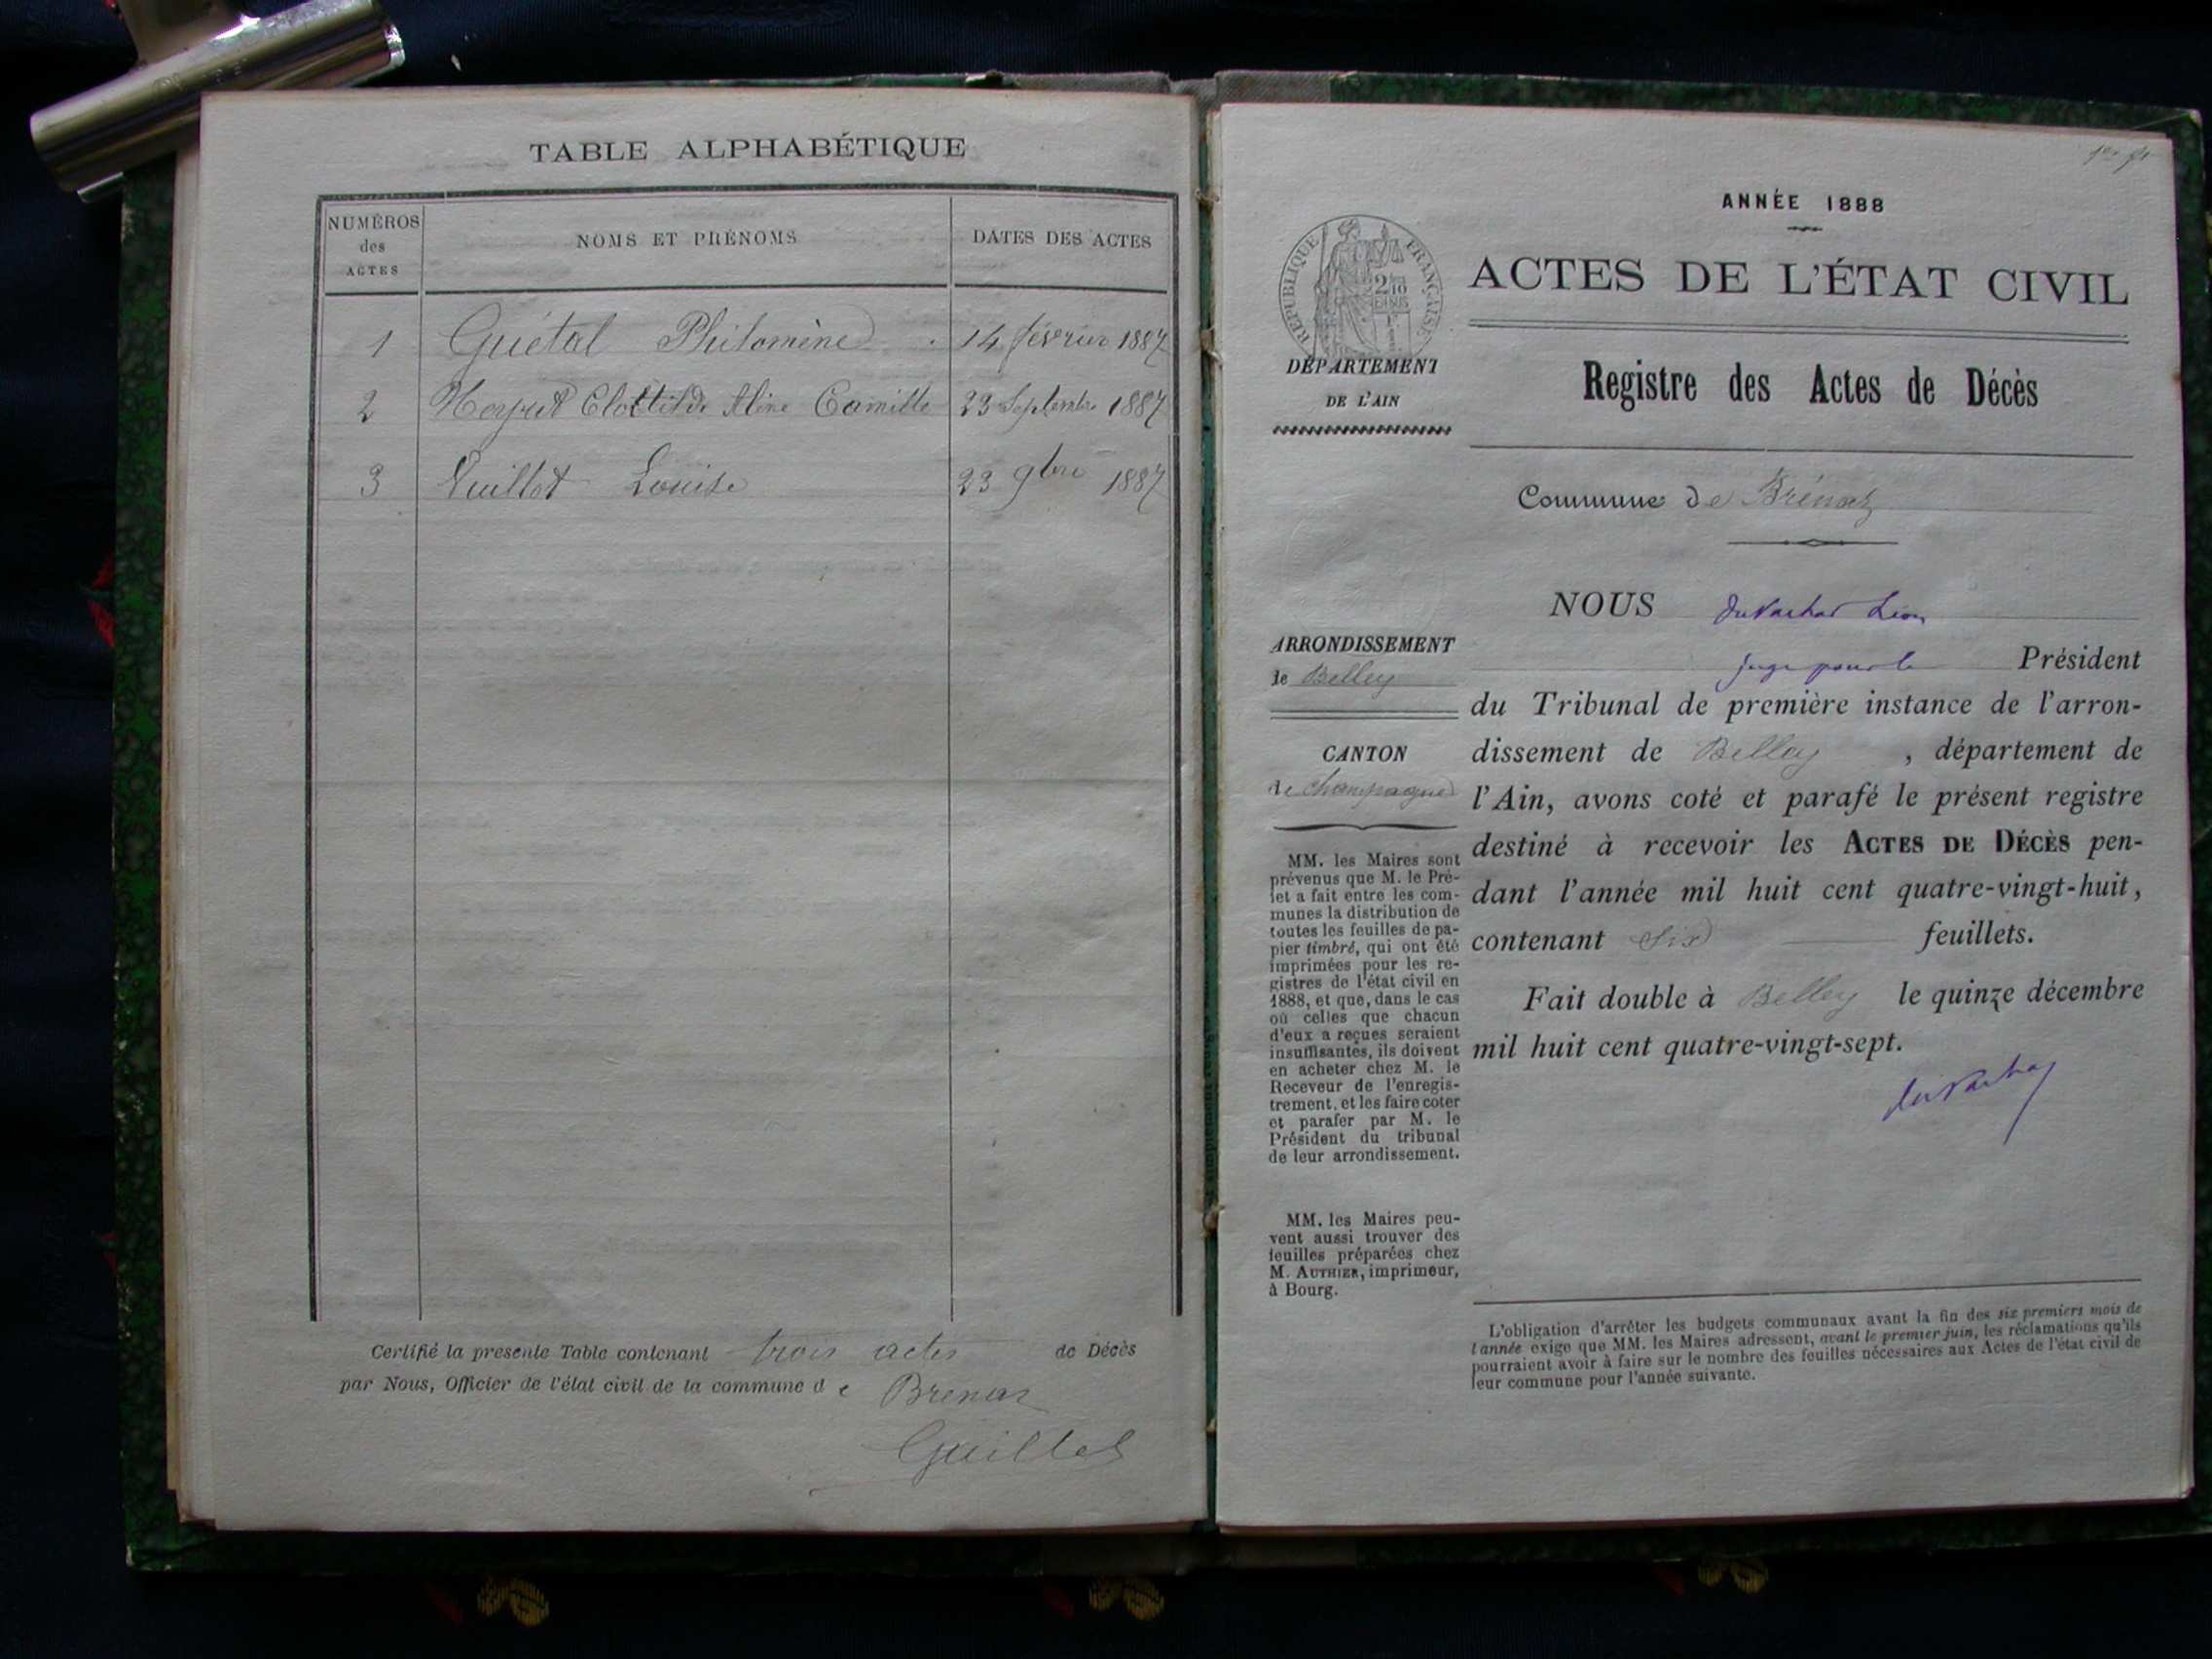 TABLE ALPHABÉTIQUE
NUMÉROS
des
ACTES
NOMS ET PRÉNOMS
DATES DES ACTES
1 Guétal Philomène 14 février 1887
2 Clottilde Aline Camille 23 Septembre 1887
3 Vuillot Louise 23 9bre 1887
Certifié la présente Table contenant trois actes de Décès
par Nous, Officier de l'état civil de la commune de Brenas
Guillet
1er
ANNÉE 1888
RÉPUBLIQUE FRANÇAISE
ACTES DE L'ÉTAT CIVIL
DÉPARTEMENT
DE L'AIN
Registre des Actes de Décès
Commune de Brénaz
ARRONDISSEMENT
de Belley
CANTON
de Champagne
MM. les Maires sont
prévenus que M. le Pré-
fet a fait entre les com-
munes la distribution de
toutes les feuilles de pa-
pier timbré, qui ont été
imprimées pour les re-
gistres de l'état civil en
1888, et que, dans le cas
où celles que chacun
d'eux a reçues seraient
insuffisantes, ils doivent
en acheter chez M. le
Receveur de l'enregis-
trement, et les faire coter
et parafer par M. le
Président du tribunal
de leur arrondissement.
MM. les Maires peu-
vent aussi trouver des
feuilles préparées chez
M. AUTHIER, imprimeur,
à Bourg.
NOUS Léon
juge pour le Président
du Tribunal de première instance de l'arron-
dissement de Belley , département de
l'Ain, avons coté et parafé le présent registre
destiné à recevoir les ACTES DE DÉCÈS pen-
dant l'année mil huit cent quatre-vingt-huit,
contenant six feuillets.
Fait double à Belley le quinze décembre
mil huit cent quatre-vingt-sept.
L'obligation d'arrêter les budgets communaux avant la fin des six premiers mois de
l'année exige que MM. les Maires adressent, avant le premier juin, les réclamations qu'ils
pourraient avoir à faire sur le nombre des feuilles nécessaires aux Actes de l'état civil de
leur commune pour l'année suivante.